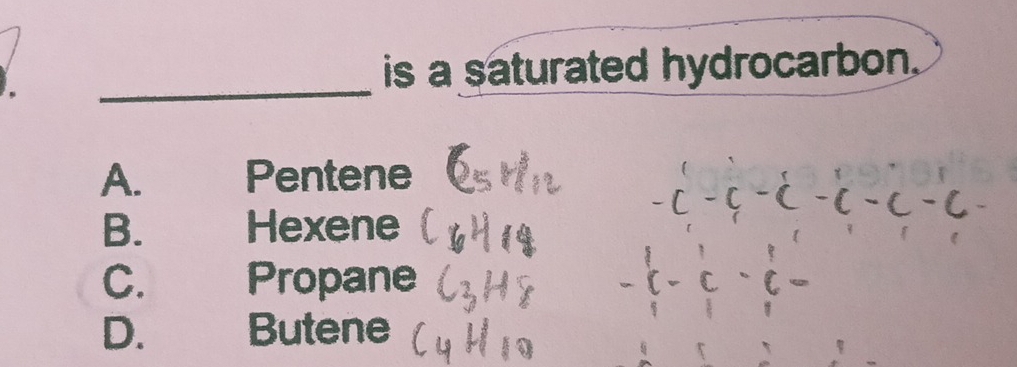 __________ is a saturated hydrocarbon.
A. Pentene C5H12
B. Hexene C6H14
C. Propane C3H8
D. Butene C4H10
-C-C-C-C-C-C-
-C-C-C-